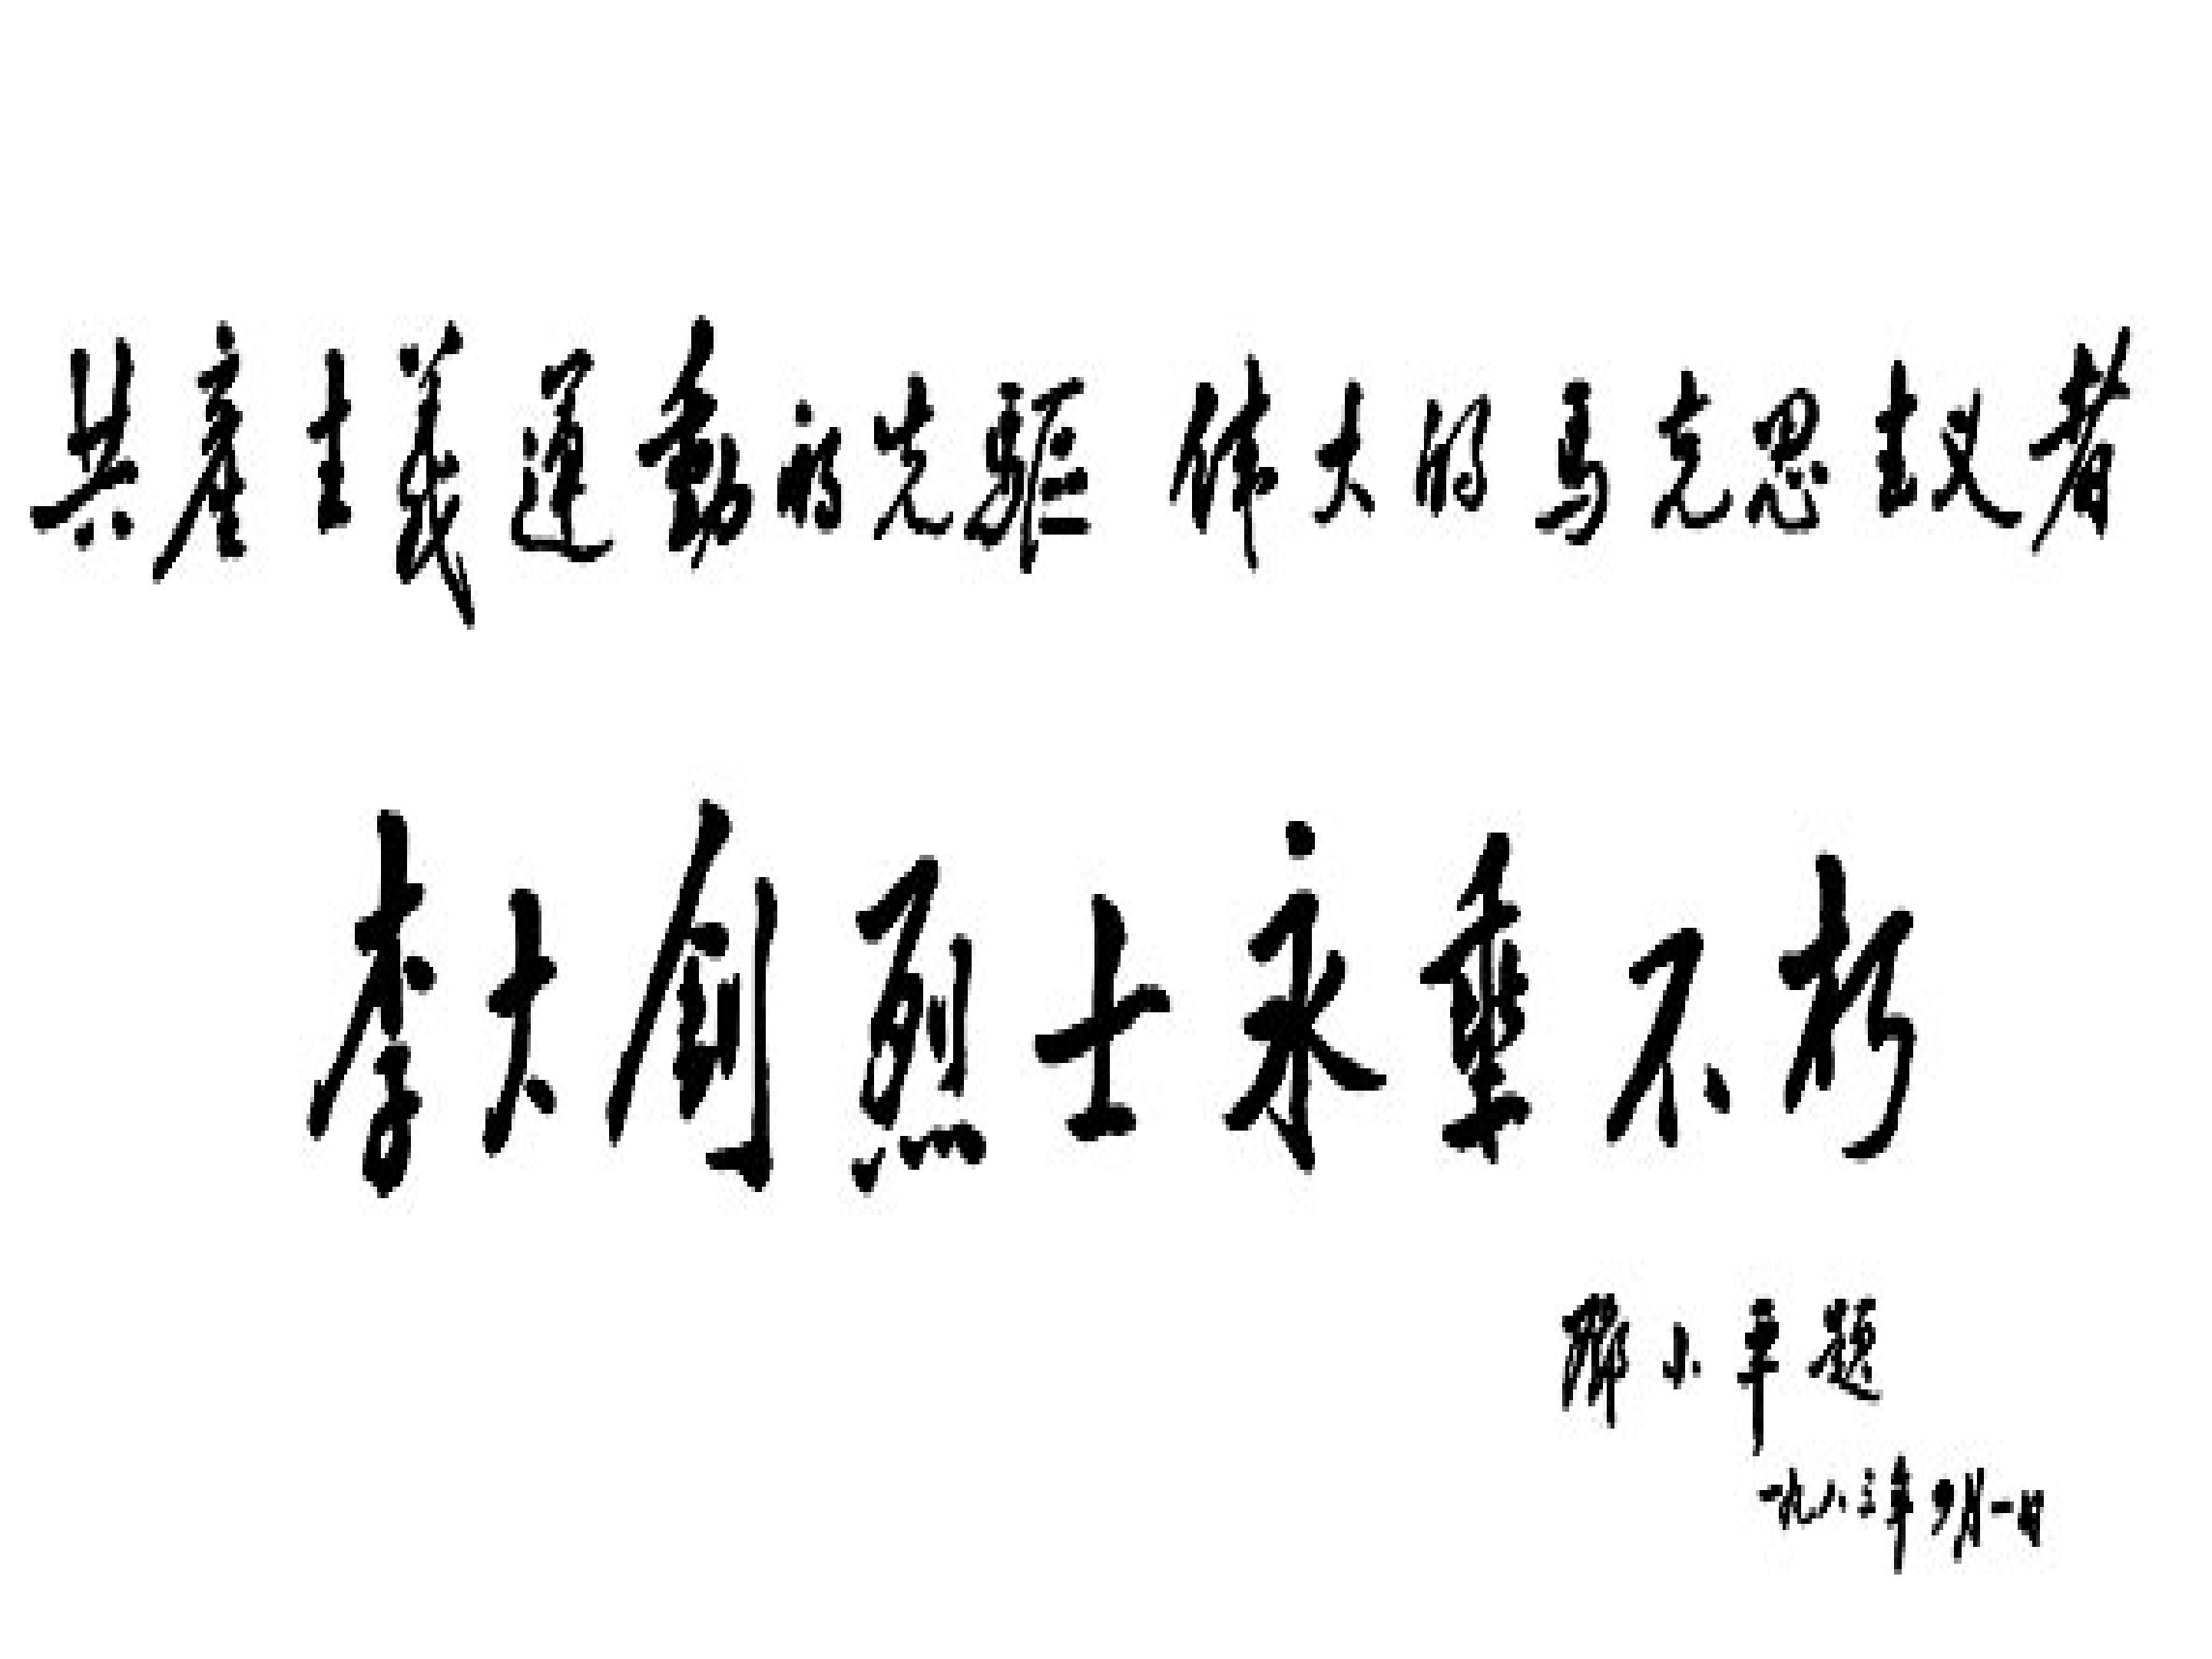 共產主義運動的先驅 伟大的马克思主义者
李大钊烈士永垂不朽
鄧小平题
一九八三年 月一日